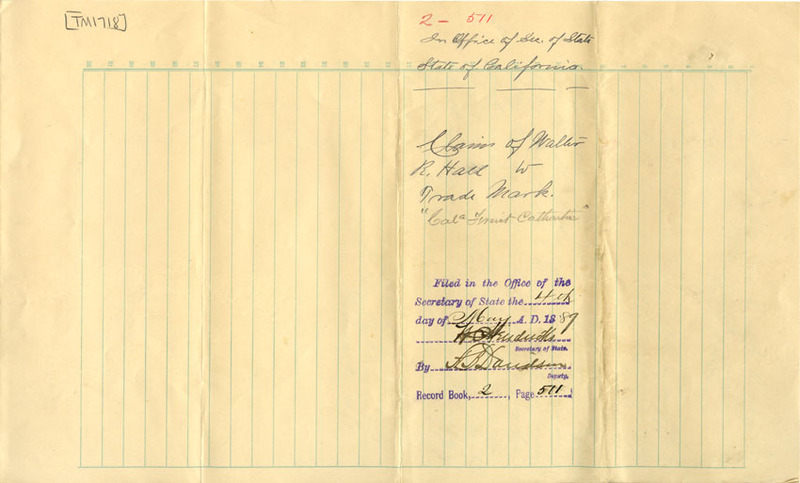 [TM1718]
2 - 511
In Office of Sec. of State
State of California.
Claim of Walter
R. Hall to
Trade Mark.
"Cala Fruit Cathartic"
Filed in the Office of the
Secretary of State the 4th
day of May A. D. 1889
Secretary of State.
By Davidson
Deputy.
Record Book, 2, Page 511